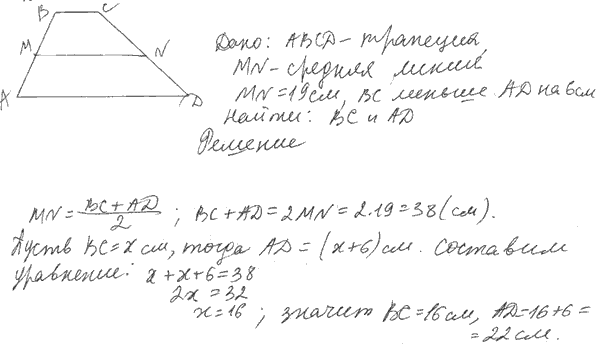 B C
M N
A D
Дано: ABCD - трапеция,
MN - средняя линия
MN = 19 см, BC меньше AD на 6 см
Найти: BC и AD
Решение
MN = (BC + AD)/2 ; BC + AD = 2MN = 2·19 = 38 (см).
Пусть BC = x см, тогда AD = (x+6) см. Составим
уравнение: x + x + 6 = 38
2x = 32
x = 16 ; значит BC = 16 см, AD = 16 + 6 =
= 22 см.